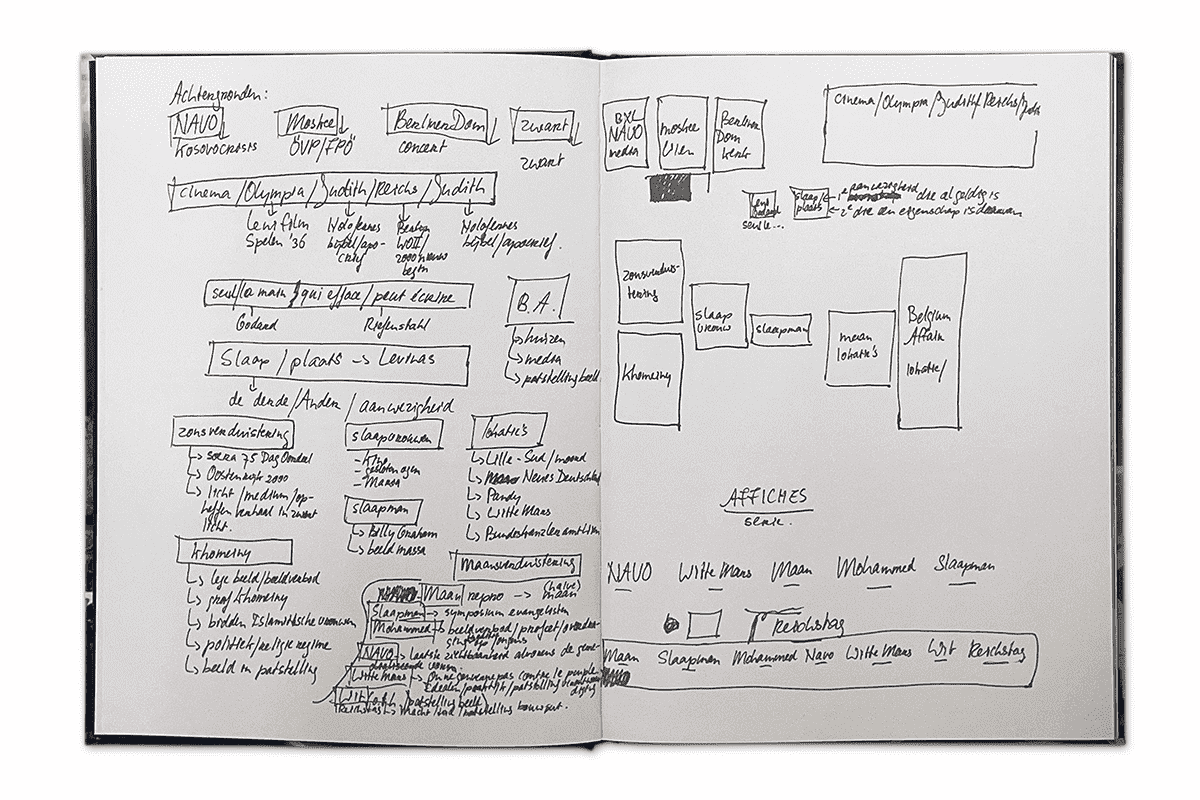 Achtergronden:
NAVO
Kosovocrisis
Moskee
ÖVP/FPÖ
Berliner Dom
concert
zwart
zwart
cinema/Olympia/Judith/Reichs/Judith
Leni film
Spelen '36
Holofernes
bijbel/apo-
crief
Berlijn
WOII/
2000 nieuw
begin
Holofernes
bijbel/apocrief.
seul la main qui efface/peut écrire
Godard
Riefenstahl
B.A.
huizen
media
patstelling beeld
Slaap/plaats -> Levinas
de derde/Ander/aanwezigheid
zonsverduistering
Oostenrijk 2000
licht/medium/op-
licht.
slaapvrouwen
- Kino
- gesloten ogen
- Massa
slaapman
Billy Graham
beeld massa
lokatie's
Lille-Sud/moord
Neues Deutschland
Pandy
Witte Mars
Bundeskanzleramt Wien
Khomeiny
lege beeld/beeldverbod
graf Khomeiny
bidden Islamitische vrouwen
politiek/religie regime
beeld in patstelling
maansverduistering
Maan repro -> (halve) maan
Slaapman -> symposium evangelisten
Mohammed -> beeldverbod/profeet/
NAVO -> laatste zichtbaarheid alvorens de
Witte Mars -> On ne gouverne pas contre le peuple
Wit /patstelling beeld
Reichstag -> macht/ /patstelling bouwput.
BXL
NAVO
media
moskee
Wien
Berliner
Dom
kerk
cinema/Olympia/Judith/Reichs/Judith
seul le...
slaap/
plaats
1e aanwezigheid die afgeldig is
2e die een eigenschap is daarvan
zonsverduis-
tering
Khomeiny
slaap
vrouw
slaapman
maan
lokatie's
Belgium
Affair
lokatie/
AFFICHES
serie.
NAVO Witte Mars Maan Mohammed Slaapman
Reichstag
Maan Slaapman Mohammed Navo Witte Mars Wit Reichstag
NAVO